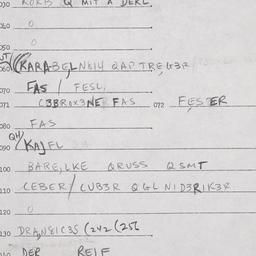 030 KOKB Q MIT A DERL.
040 0
050 0
060 (KARABELN814 QAP TREG3R
070 FAS / FESL.
071 C3BROX3NE FAS 072 FESTER
080 FAS
090 KAJFL
100 BARE,LKE QRUSS QSMT
110 CEBER/CUB3R QGL NID3RIK3R
120 0
130 DRA,N8IC3S (242 (256
DER REIF